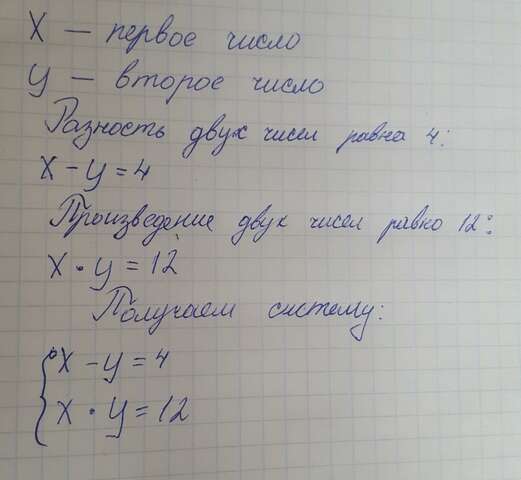 X — первое число
У — второе число
Разность двух чисел равна 4:
X - У = 4
Произведение двух чисел равно 12:
X · У = 12
Получаем систему:
{ X - У = 4
X · У = 12